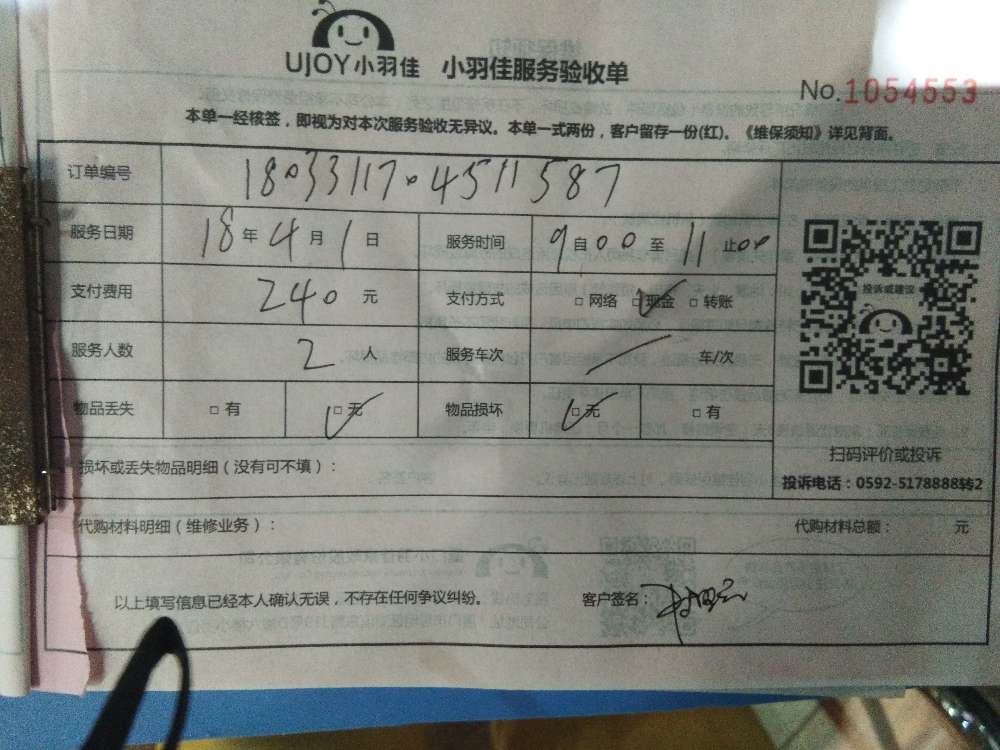 UJOY小羽佳 小羽佳服务验收单
No.1054553
本单一经核签，即视为对本次服务验收无异议。本单一式两份，客户留存一份(红)。《维保须知》详见背面。
订单编号 1803311704511587
服务日期 18年4月1日 服务时间 9自00至11止00
支付费用 240元 支付方式 □网络 □现金 □转账
服务人数 2人 服务车次 / 车/次
物品丢失 □有 □无 物品损坏 □无 □有
投诉或建议
扫码评价或投诉
损坏或丢失物品明细（没有可不填）：
投诉电话：0592-5178888转2
代购材料明细（维修业务）： 代购材料总额： 元
以上填写信息已经本人确认无误，不存在任何争议纠纷。 客户签名：